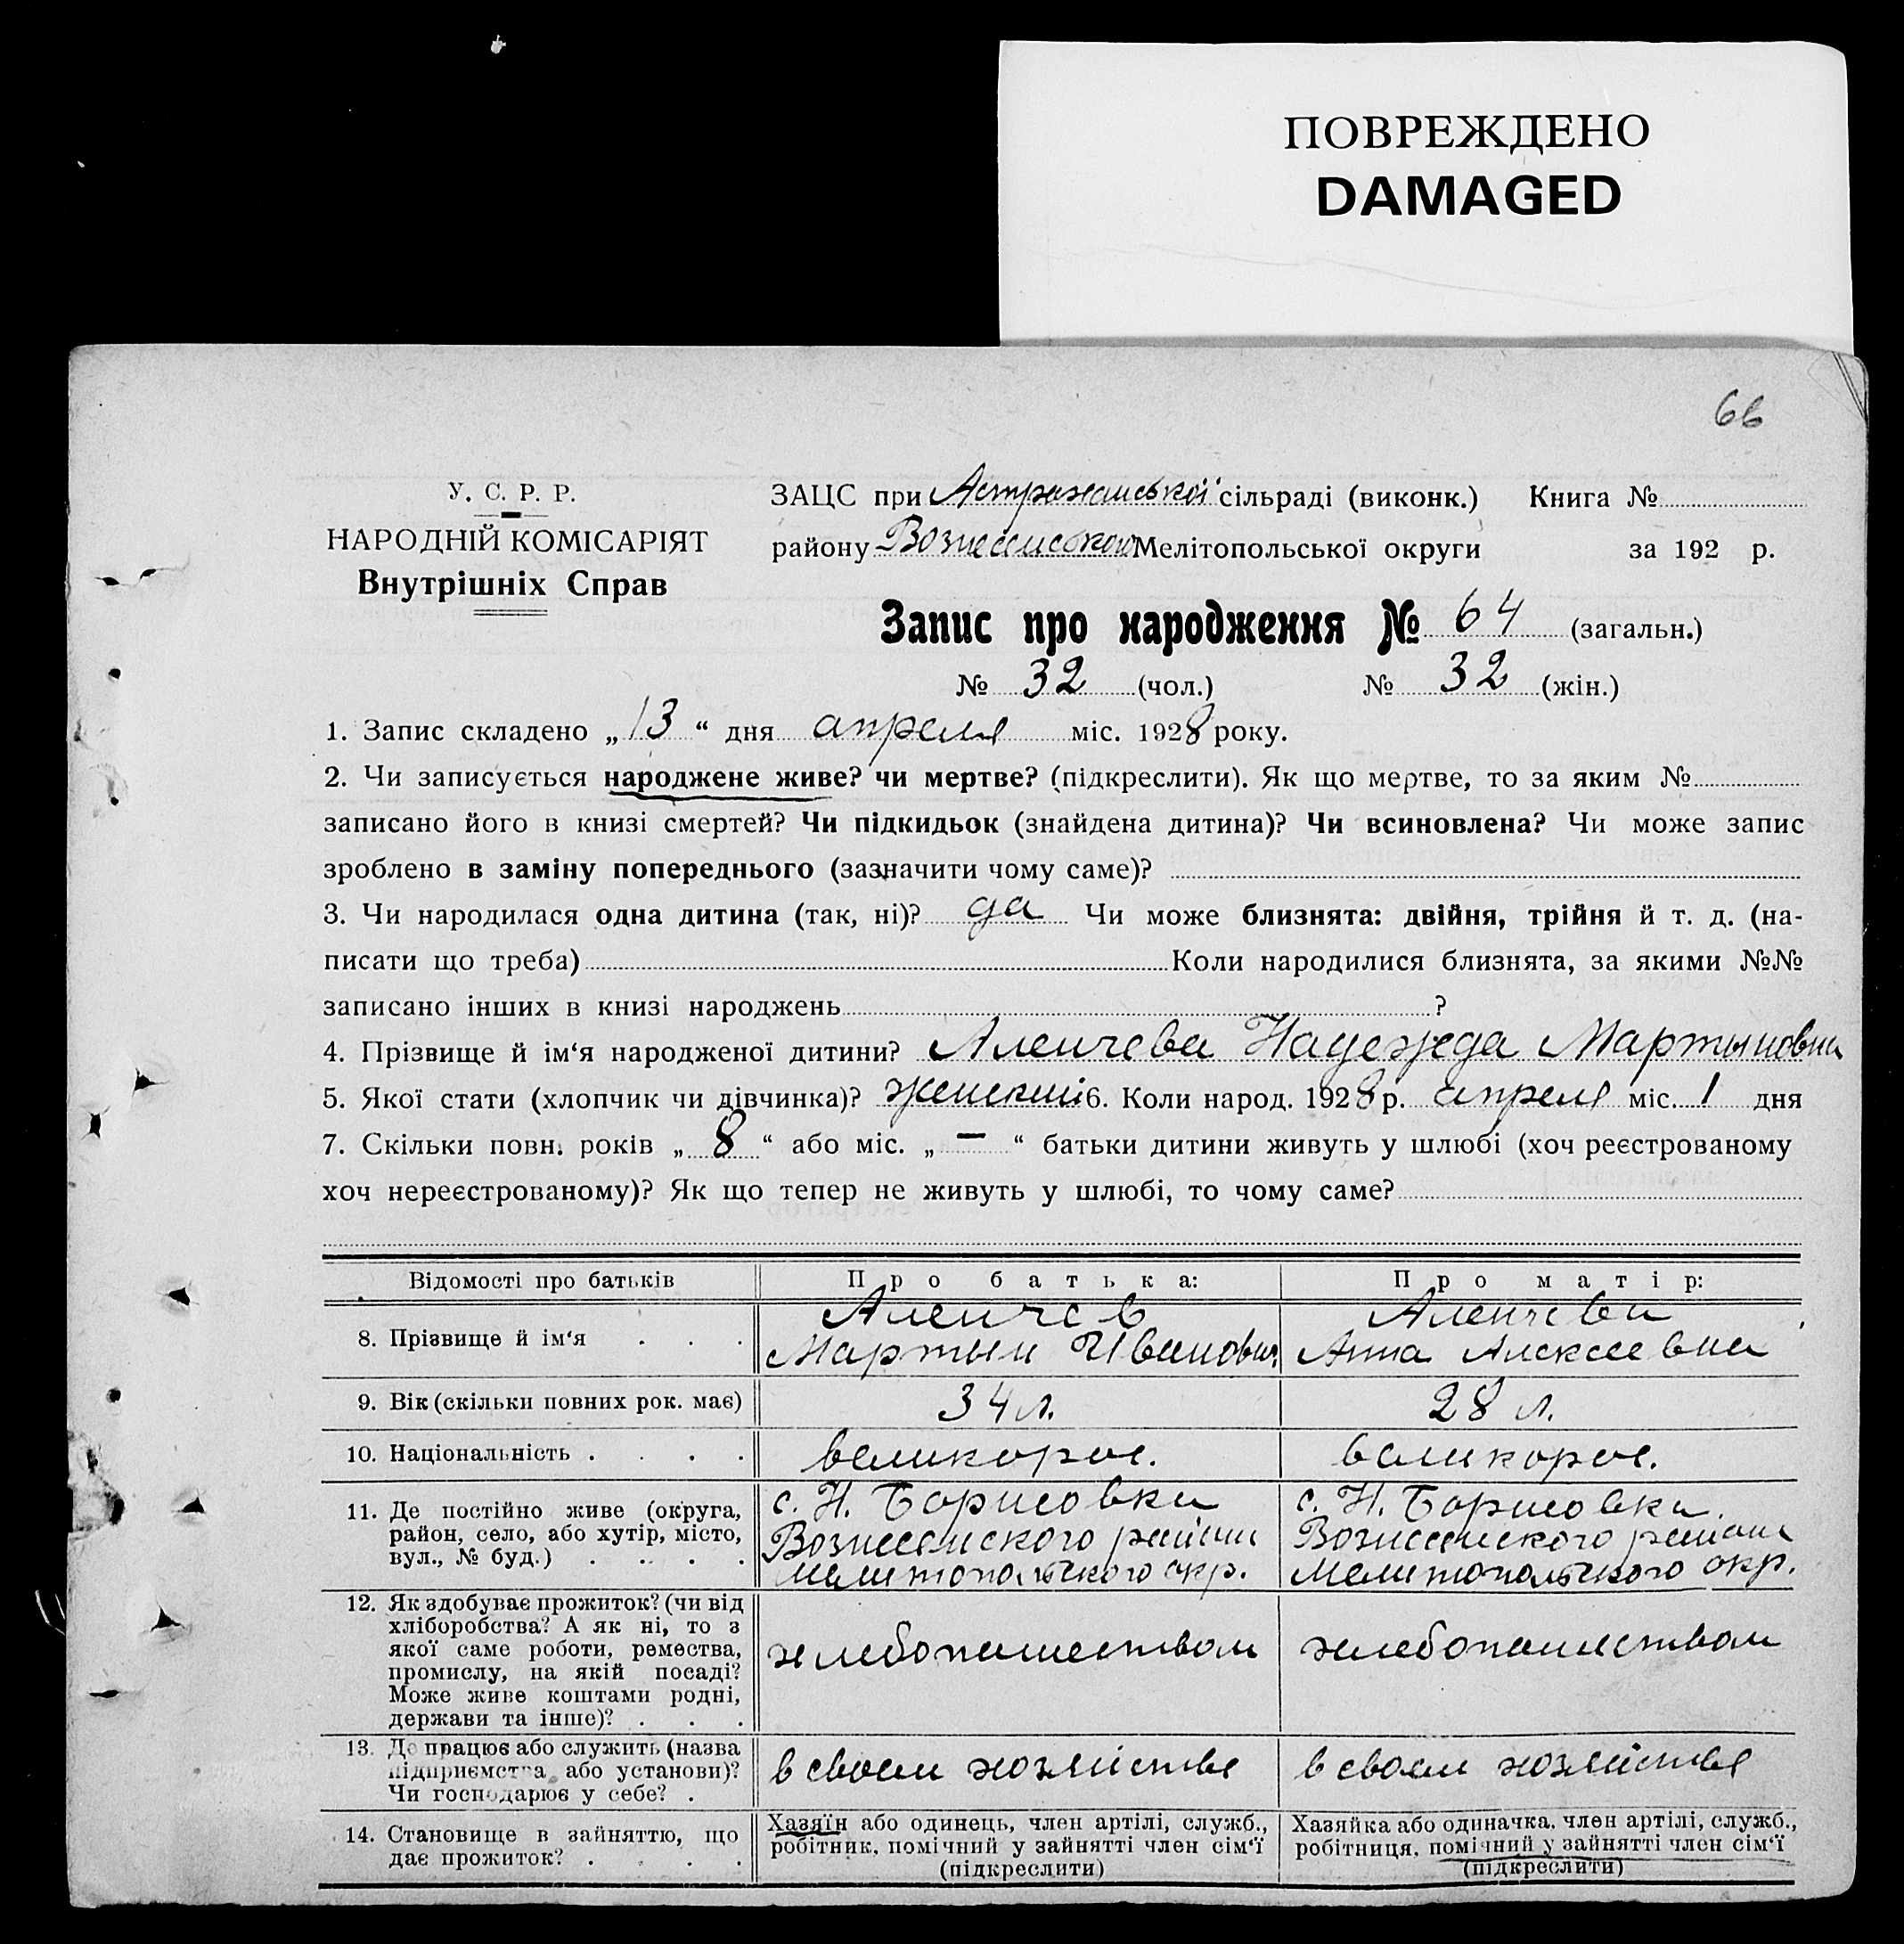 ПОВРЕЖДЕНО
DAMAGED
66
У. С. Р. Р.
НАРОДНІЙ КОМІСАРІЯТ
Внутрішніх Справ
ЗАЦС при Астраханської сільраді (виконк.) Книга №
району Вознесенського Мелітопольської округи за 192 р.
Запис про народження № 64 (загальн.)
№ 32 (чол.) № 32 (жін.)
1. Запис складено „13“ дня апреля міс. 1928 року.
2. Чи записується народжене живе? чи мертве? (підкреслити). Як що мертве, то за яким №
записано його в книзі смертей? Чи підкидьок (знайдена дитина)? Чи всиновлена? Чи може запис
зроблено в заміну попереднього (зазначити чому саме)?
3. Чи народилася одна дитина (так, ні)? да Чи може близнята: двійня, трійня й т. д. (на-
писати що треба) Коли народилися близнята, за якими №№
записано інших в книзі народжень ?
4. Прізвище й ім‘я народженої дитини? Аленчева Надежда Мартыновна
5. Якої стати (хлопчик чи дівчинка)? женский 6. Коли народ. 1928 р. апреля міс. 1 дня
7. Скільки повн. років „8“ або міс. „—“ батьки дитини живуть у шлюбі (хоч реєстрованому
хоч нереєстрованому)? Як що тепер не живуть у шлюбі, то чому саме?
Відомості про батьків Про батька: Про матір:
8. Прізвище й ім‘я . . .
Аленчев
Мартын Иванович
Аленчева
Анна Алексеевна
9. Вік (скільки повних рок. має) 34 л. 28 л.
10. Національність . . . . великорос. великорос.
11. Де постійно живе (округа,
район, село, або хутір, місто,
вул., № буд.) . . . .
с. Н. Борисовка
Вознесенского района
Мелитопольского окр.
с. Н. Борисовка.
Вознесенского района
Мелитопольского окр.
12. Як здобуває прожиток? (чи від
хліборобства? А як ні, то з
якої саме роботи, ремества,
промислу, на якій посаді?
Може живе коштами родні,
держави та інше)? . . .
хлебопашеством
хлебопашеством
13. Де працює або служить (назва
підприємства або установи)?
Чи господарює у себе? .
в своем хозяйстве
в своем хозяйстве
14. Становище в зайняттю, що
дає прожиток? . . . .
Хазяїн або одинець, член артілі, служб.,
робітник, помічний у зайнятті член сім‘ї
(підкреслити)
Хазяйка або одиначка, член артілі, служб.,
робітниця, помічний у зайнятті член сім‘ї
(підкреслити)